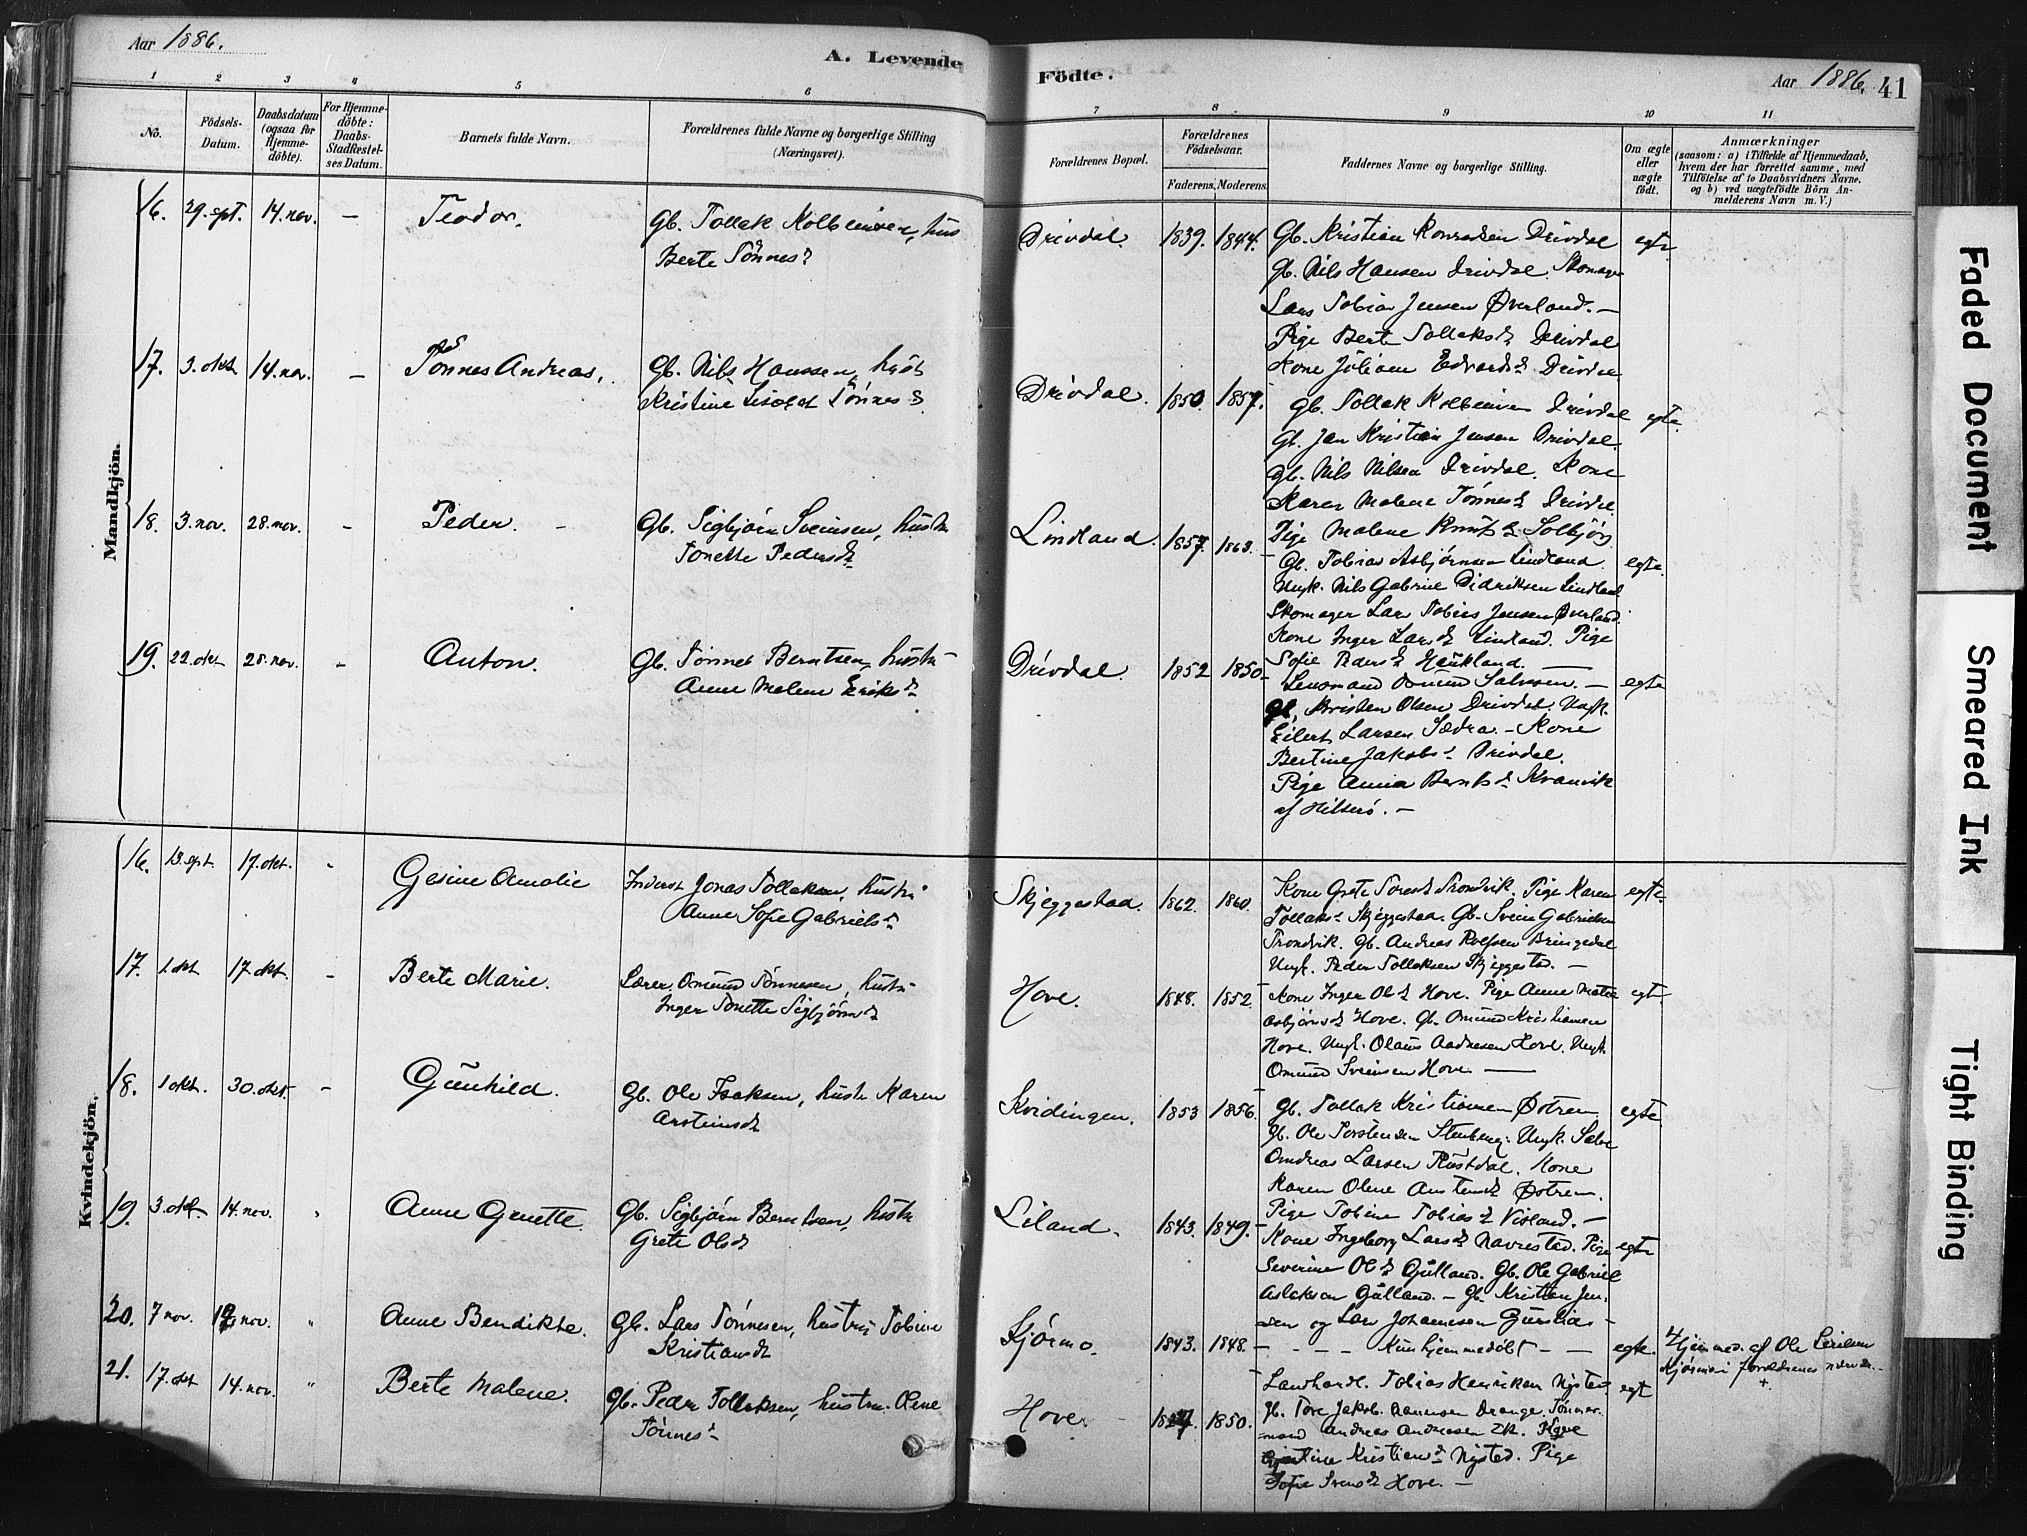 Aar 1886.
A. Levende Födte.
Aar 1886. 41
1 2 3 4 5 6 7 8 9 10 11
No.
Födsels-
Datum.
Daabsdatum
(ogsaa for
Hjemme-
döbte).
For Hjemme-
döbte:
Daabs-
Stadfæstel-
ses Datum.
Barnets fulde Navn.
Forældrenes fulde Navne og borgerlige Stilling
(Næringsvei).
Forældrenes Bopæl.
Forældrenes
Födselsaar.
Faderens. Moderens.
Faddernes Navne og borgerlige Stilling.
Om ægte
eller
uægte
födt.
Anmærkninger
(saasom: a) i Tilfælde af Hjemmedaab,
hvem der har forrettet samme, med
Tilföielse af to Daabsvidners Navne,
og b) ved uægtefödte Börn An-
melderens Navn m. V.)
Mandkjön.
16. 29. spt. 14. nov. — Teodor.
Gb. Tollak Kolbeinsen, hus
Berte Tönnesd
Drivdal. 1839. 1844. egte
Gb. Kristian Konradsen Drivdal
Gb. Nils Hansen Drivdal. Skomager
Lars Tobias Jensen Øverland. —
Pige Berte Tollaksd Drivdal
Kone Juliane Edvardsd Drivdal
17. 3. okt 14. nov. — Tönnes Andreas.
Gb. Nils Hanssen, hust
Kristine Lisabet Tönnesd
Drivdal. 1850. 1857. egte.
Gb. Tollak Kolbeinsen Drivdal
Gb. Jan Kristian Jensen Drivdal.
Gb. Nils Nilsen Drivdal. Kone
Karen Malene Tönnesd Drivdal
Pige Malene Knutsd Solbjör
18. 3. nov. 28. nov. - Peder.
Gb. Sigbjørn Sveinsen, hustru
Tonette Pedersd
Lindland. 1857. 1863. egte.
Gb. Tobias Asbjørnsen Lindland.
Ungk. Nils Gabriel Didriksen Lindland
Skomager Lars Tobias Jensen Øverland.
Kone Inger Larsd Lindland. Pige
Sofie Pedersd Haukland.
19. 22. okt 28. nov. - Anton.
Gb. Tønnes Berntsen, hustru
Anne Malene Eriksd
Drivdal. 1852 1850. egte
Lensmand Omund Salvesen. —
Gb. Kristen Olsen Drivdal. Ungk.
Eilert Larsen Sædra. - Kone
Bertine Jakobsd Drivdal.
Pige Anna Berntsd Kvanvik
af Hitterö. —
Kvindekjön.
16. 13. spt. 17. okt. - Gesine Amalie
Inderst Jonas Tollaksen, hustru
Anne Sofie Gabrielsd
Skjeggestad. 1862. 1860. egte.
Kone Grete Toresd Trondvik. Pige Karen
Tollaksd Skjeggestad. Gb. Svein Gabrielsen
Trondvik. Gb. Andreas Roefsen Bringedal
Ungk. Peder Tollaksen Skjeggestad. —
17. 1. okt 17. okt. - Berte Marie.
Lærer Omund Tønnesen, hustru
Inger Tonette Sigbjørnsd
Hove. 1848. 1852. egte.
Kone Inger Olsd Hove. Pige Anne Matea
Asbjørnsd Hove. Gb. Omund Kristiansen
Hove. Ungk. Olaus Aadnesen Hove. Ungk.
Omund Sveinsen Hove —
18. 1 okt. 30. okt. - Gunhild.
Gb. Ole Isaksen, hustru Karen
Arsteinsd
Kvidingen. 1853 1856. egte
Gb. Tollak Kristiansen Østrem
Gb. Ole Torstensen Stenberg. Ungk. Salve
Omdreas Larsen Rustdal. Kone
Karen Olene Anstensd Østrem.
Pige Tobine Tobiasd Visland. —
19. 3. okt 14. nov. - Anne Genette.
Gb. Sigbjørn Berntsen, hustru
Grete Olsd
Liland. 1843. 1849. egte
Kone Ingeborg Larsd Navrestad. Pige
Severine Olsd Gulland. Gb. Ole Gabriel
Aslaksen Gulland. — Gb. Kristian Jen-
sen og Lars Johannesen
20. 7 nov. nov. " Anne Bendikte.
Gb. Lars Tønnesen, hustru Tobine
Kristiansd
Kjørmo. 1843. 1848. - - - Kun hjemmedöbt — — egte.
Hjemmed. af Ole
Kjørmo i forældrenes
21. 17. okt 14. nov. " Berte Malene.
Gb. Peder Tollaksen, hustru Olene
Tönnesd
Hove. 1850. egt
Landhandl. Tobias Henriksen Nysted
Gb. Tore Jakob Drange. Tömmer-
mand Andreas Andreasen
Kristiansd Nysted. Pige
Sofie Hove. —
Faded Document
Smeared Ink
Tight Binding